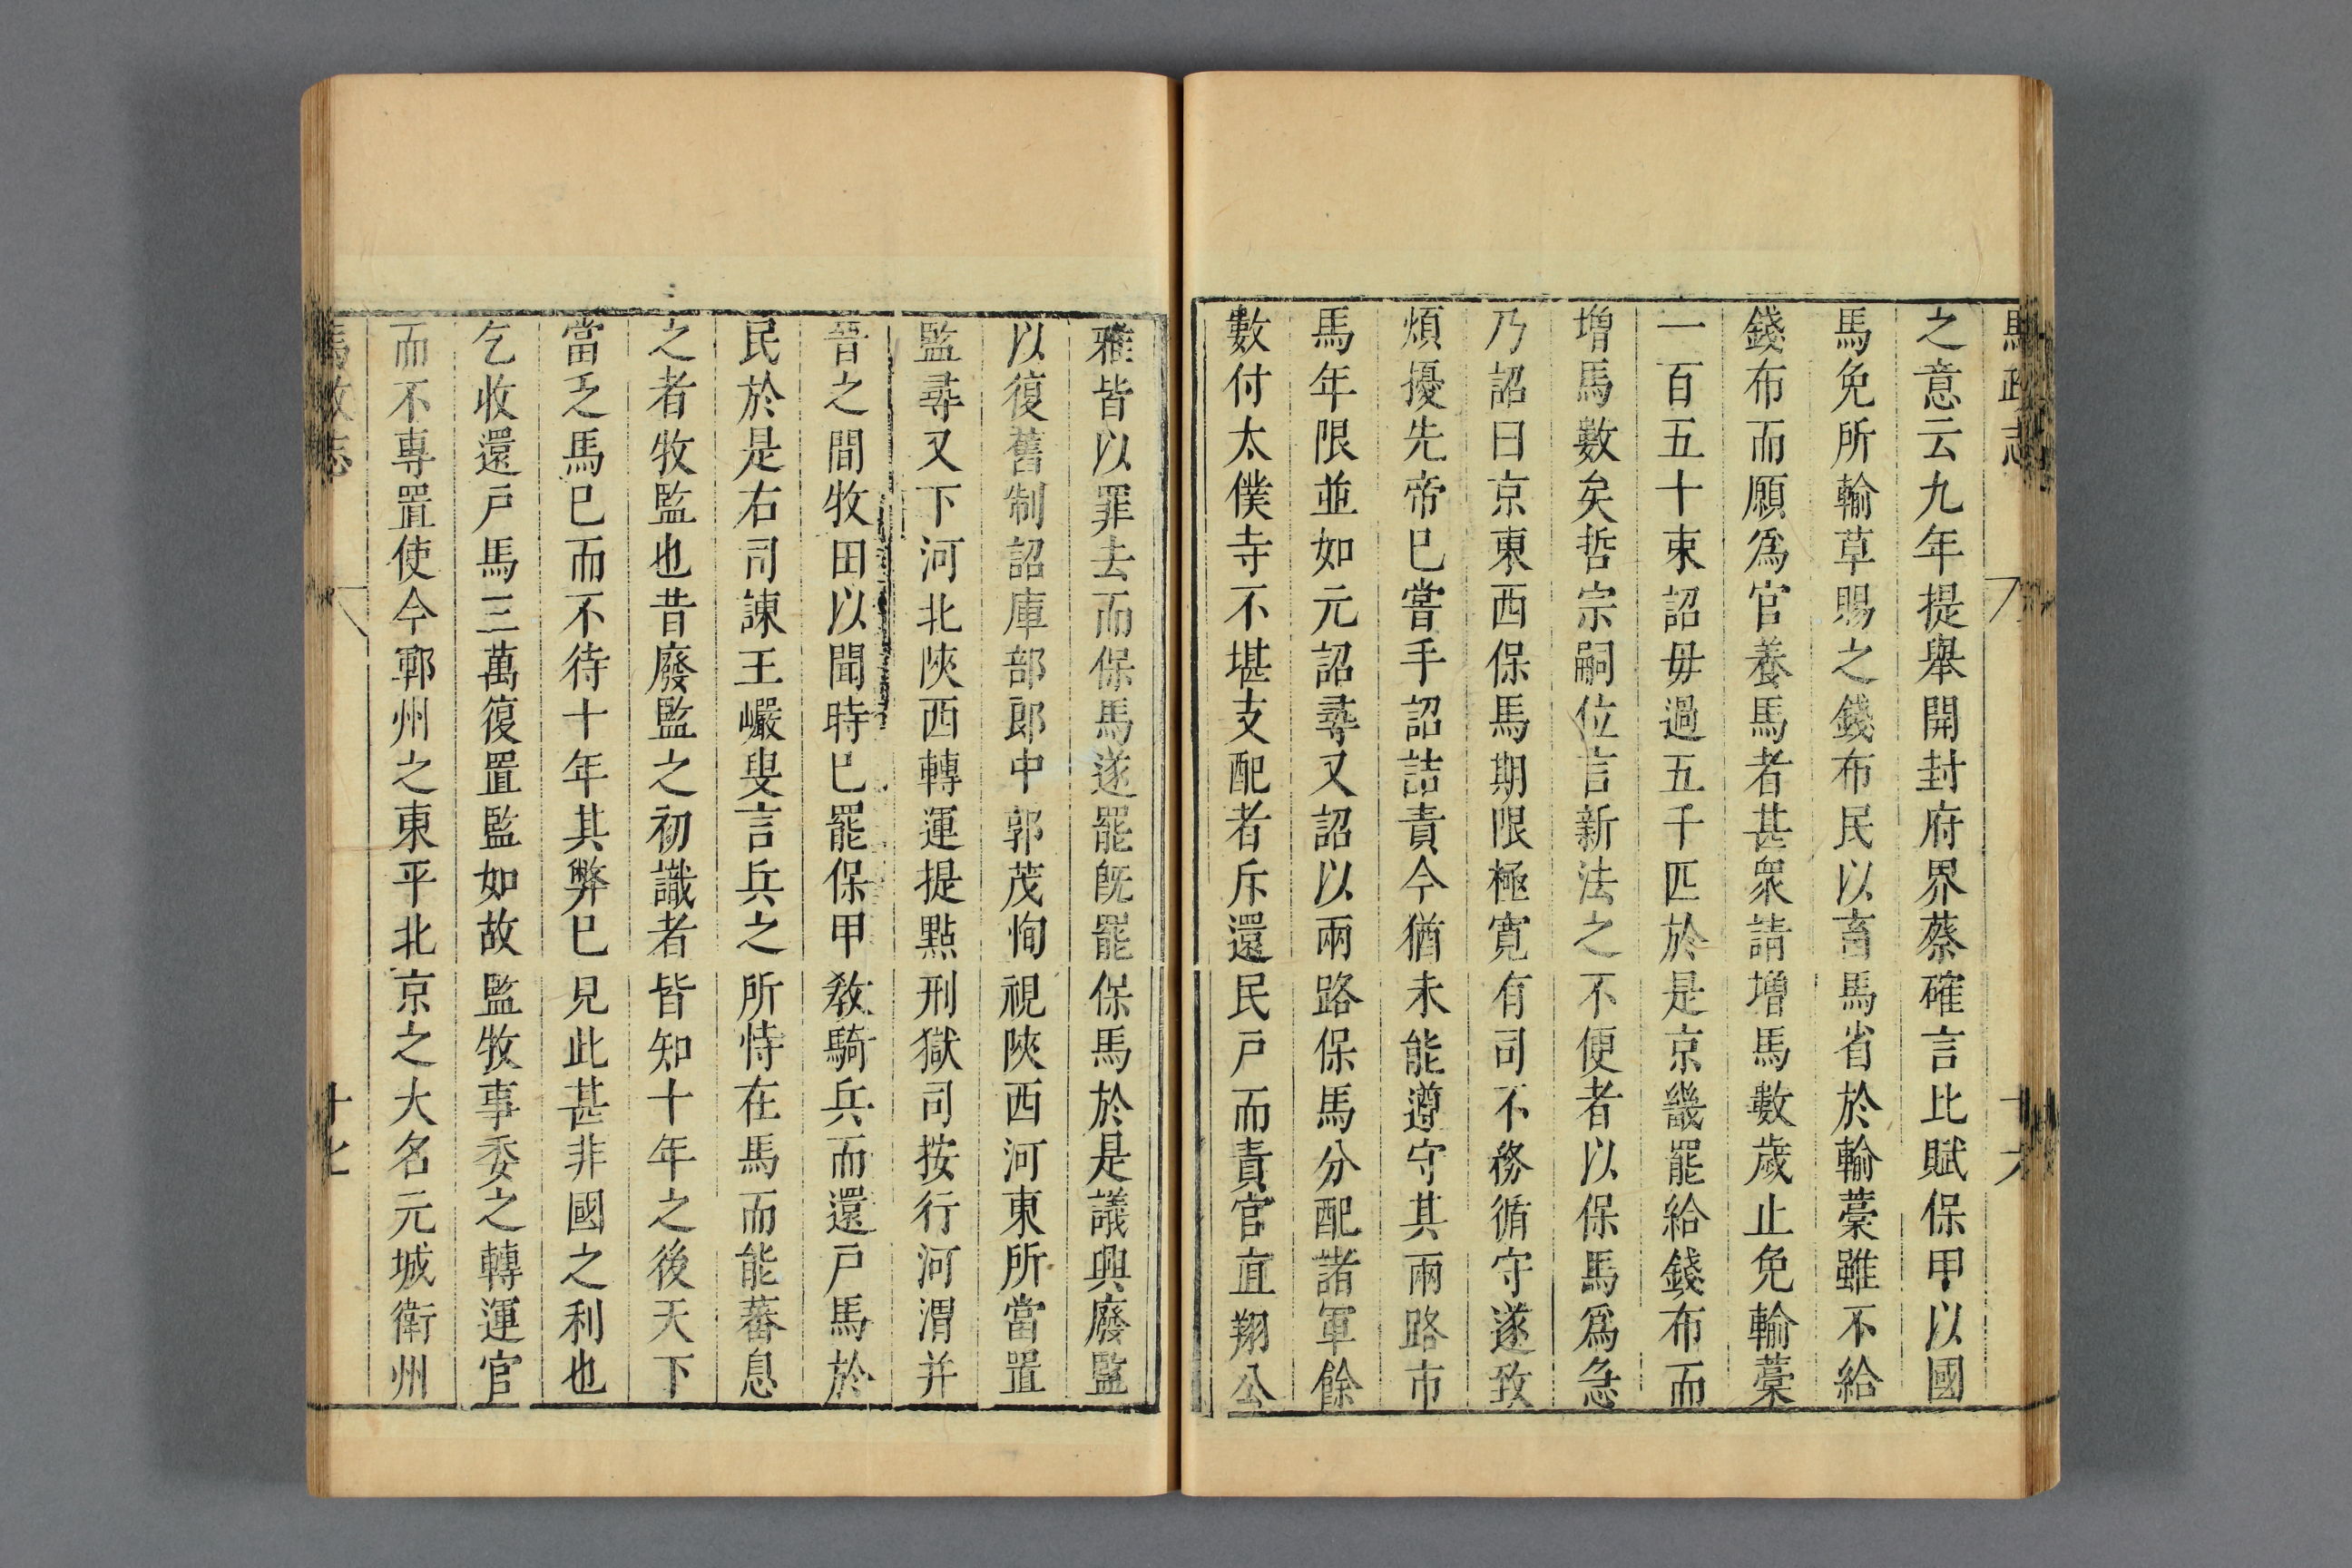 馬政志
十六
之意云九年提舉開封府界蔡確言比賦保甲以國
馬免所輸草賜之錢布民以畜馬省於輸藁雖不給
錢布而願爲官養馬者甚衆請增馬數歲止免輸藁
一百五十束詔毋過五千匹於是京畿罷給錢布而
增馬數矣哲宗嗣位言新法之不便者以保馬爲急
乃詔曰京東西保馬期限極寛有司不務循守遂致
煩擾先帝巳嘗手詔詰責今猶未能遵守其兩路市
馬年限並如元詔尋又詔以兩路保馬分配諸軍餘
數付太僕寺不堪支配者斥還民戸而責官直翔公
雅皆以罪去而保馬遂罷旣罷保馬於是議興廢監
以復舊制詔庫部郎中郭茂恂視陝西河東所當置
監尋又下河北陝西轉運提點刑獄司按行河渭并
晉之間牧田以聞時巳罷保甲敎騎兵而還戸馬於
民於是右司諫王巖叟言兵之所恃在馬而能蕃息
之者牧監也昔廢監之初識者皆知十年之後天下
當乏馬巳而不待十年其弊巳見此甚非國之利也
乞收還戸馬三萬復置監如故監牧事委之轉運官
而不專置使今鄆州之東平北京之大名元城衛州
馬政志
十七